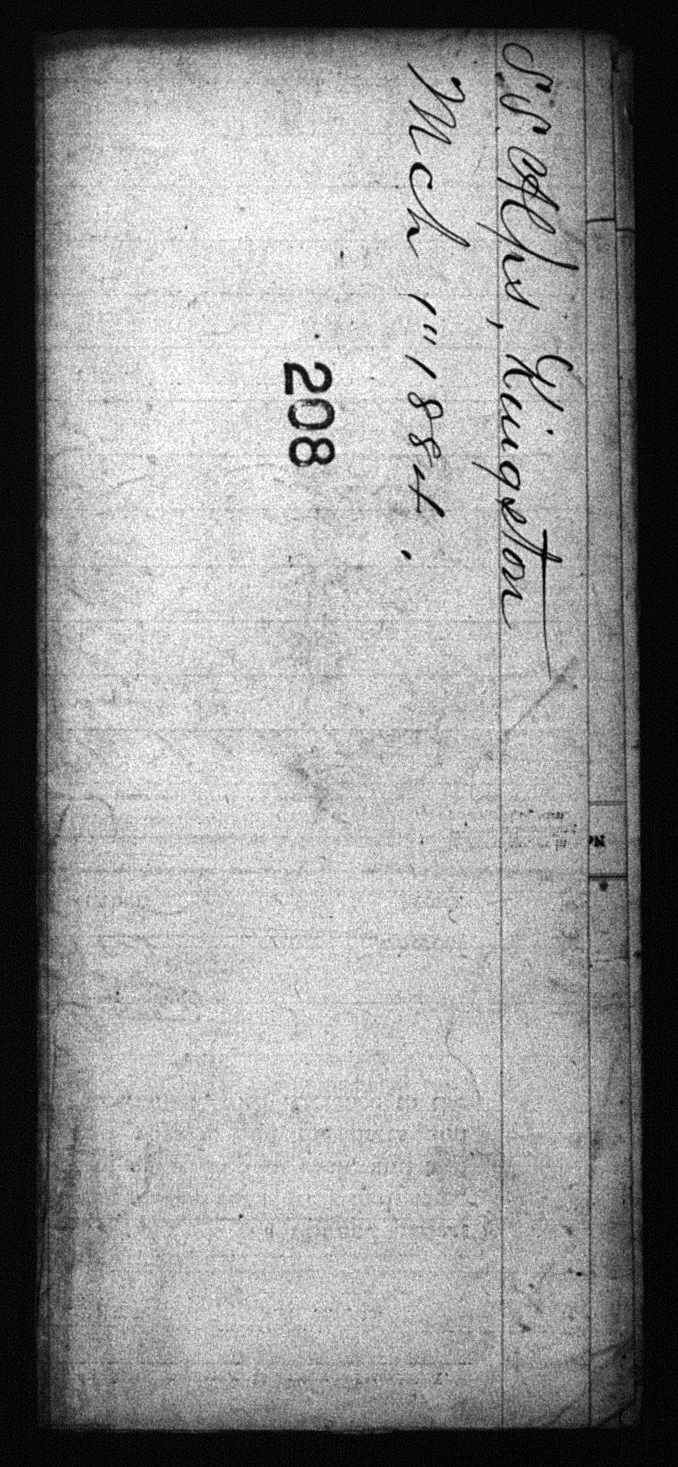 S.S. Alps, Kingston
Mch 1" 1884.
208
No